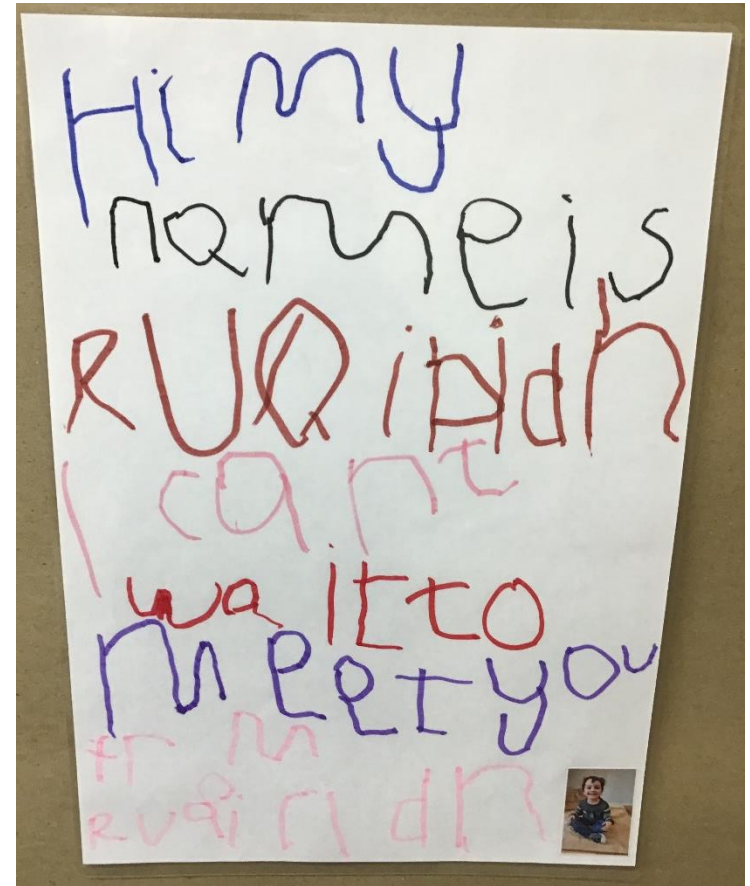 Hi my
name is
RUairidh
I cant
wait to
meet you
from
RUairidh